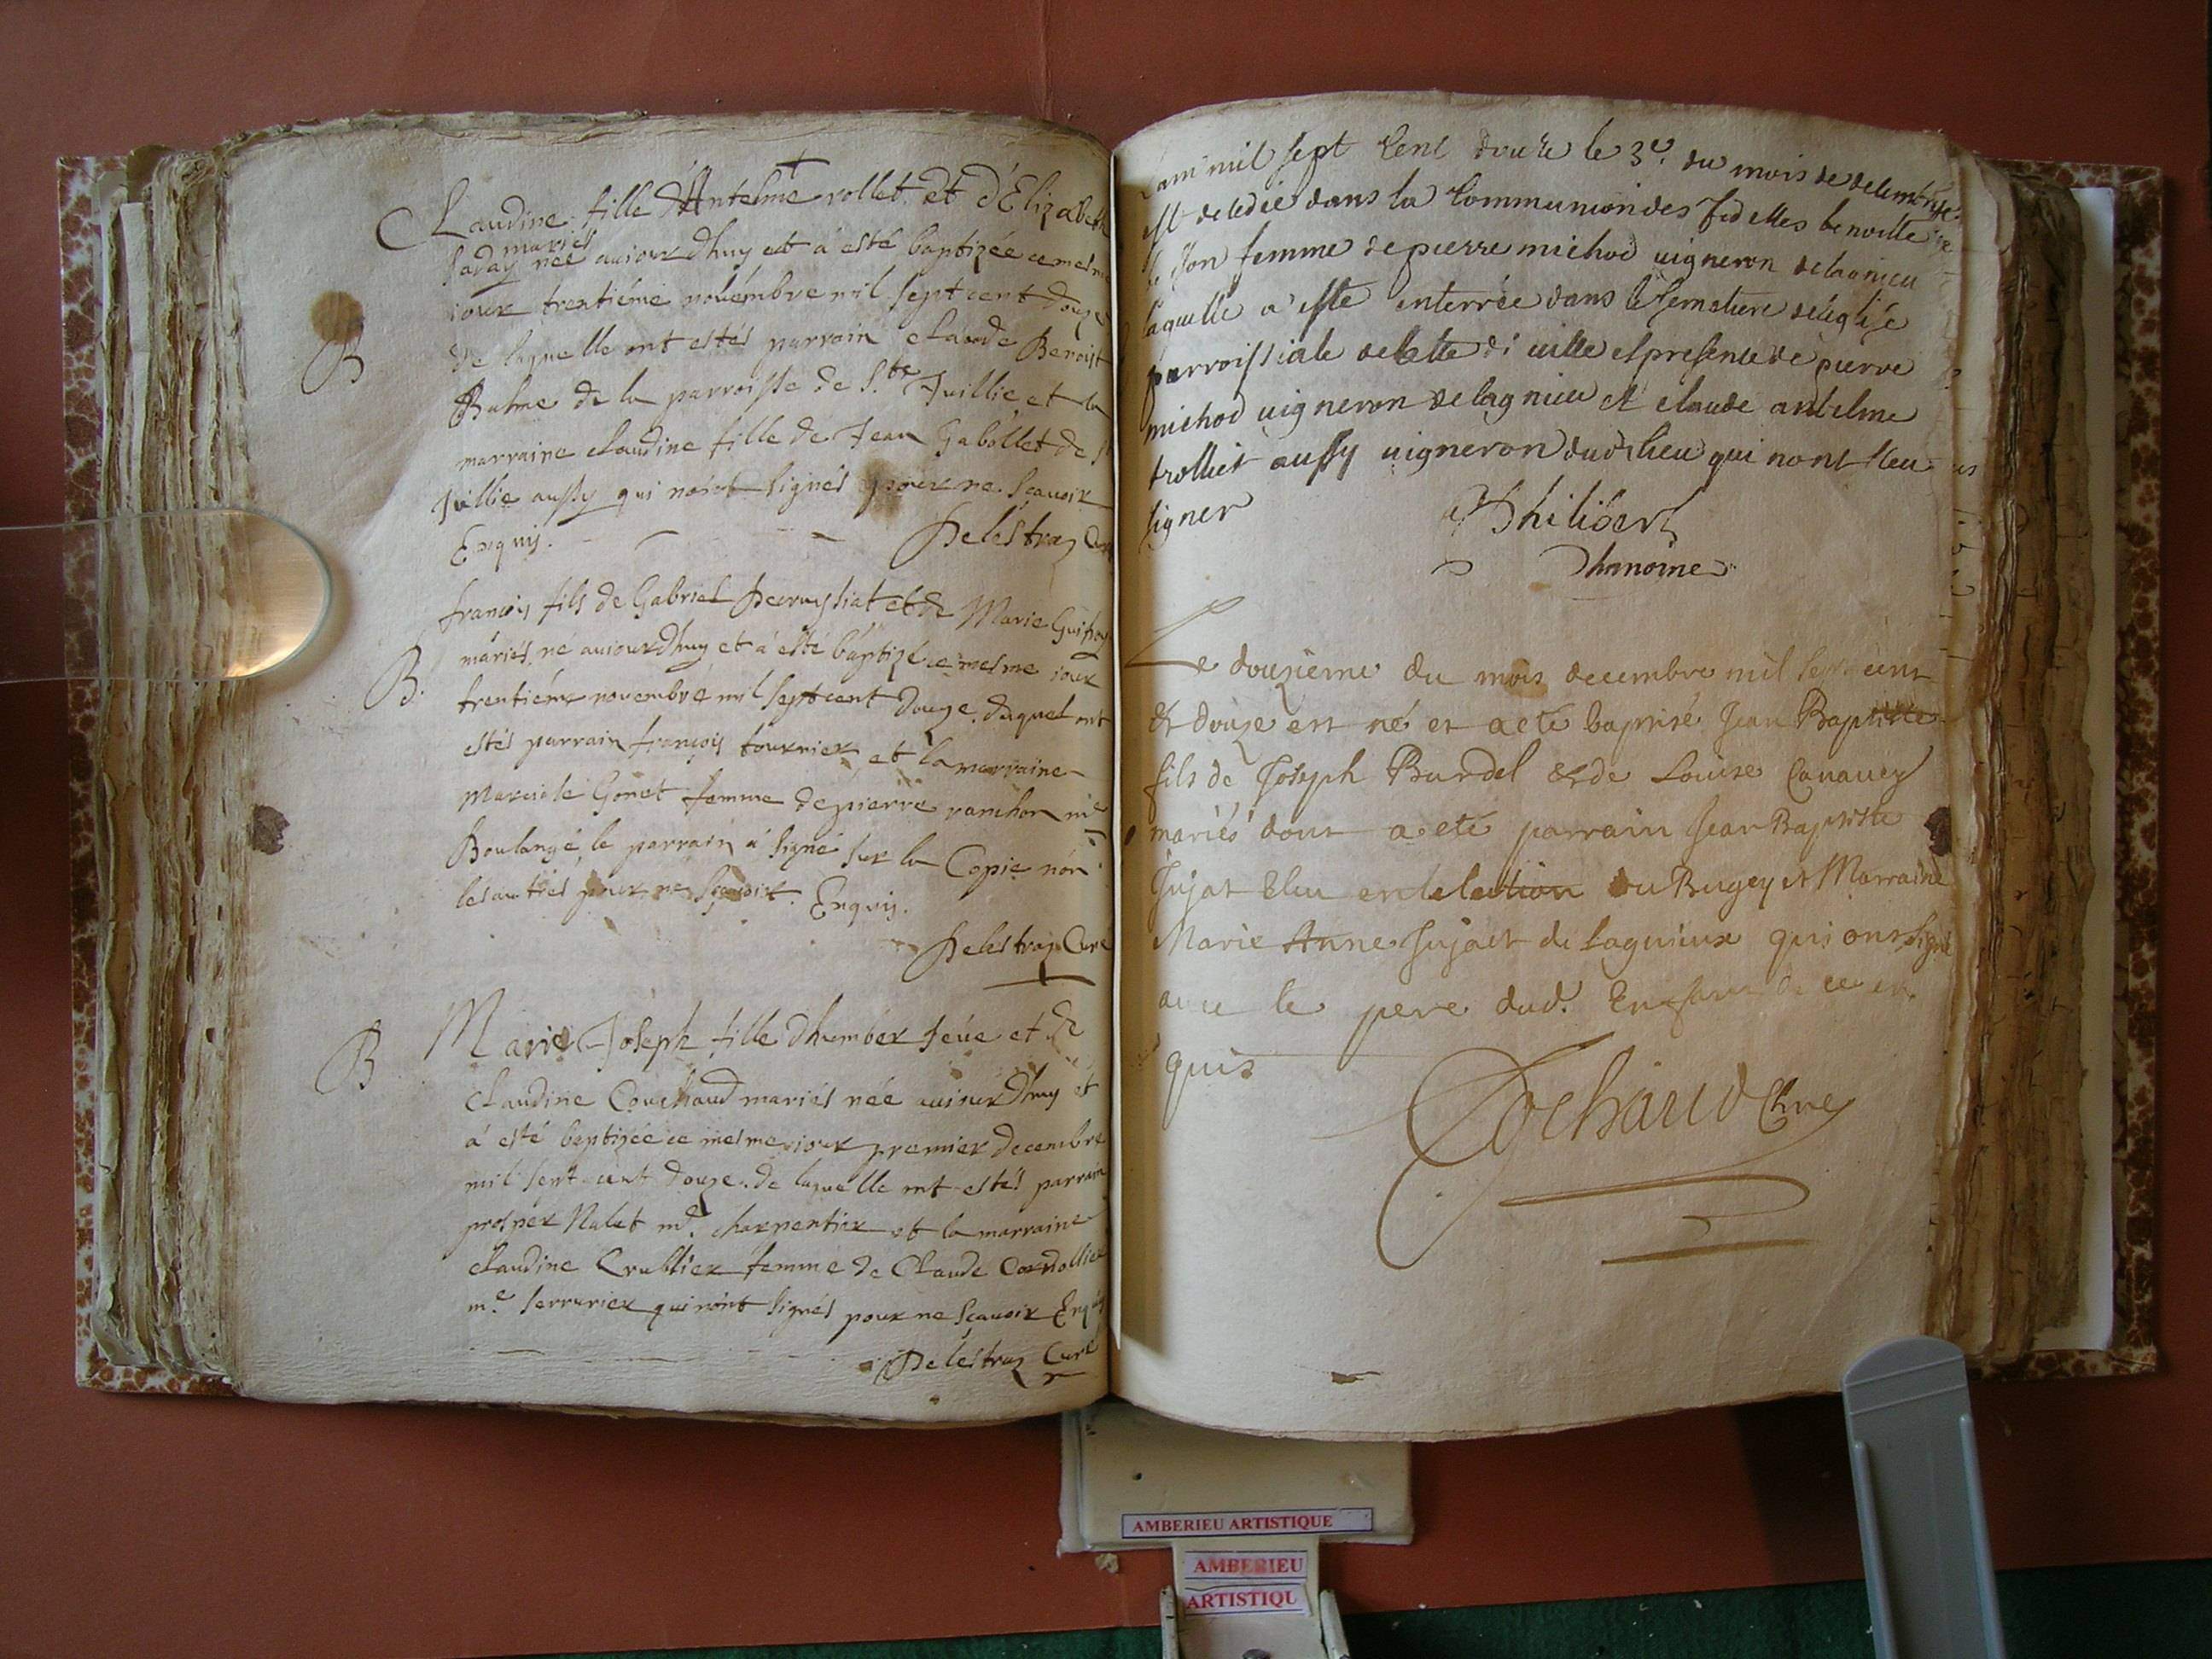 Claudine fille d'Antelme rollet et d'Elizabeth
mariés
née aujourdhuy et à esté baptizée ce mesme
jour trentiéme novémbre mil sept cent douze
B
de laquelle ont estés parrain claude Benoist
Balme de la parroisse de S.te Juillie et la
marraine claudine fille de Jean Gabollet de St
Juillie aussy qui n'ont signés pour ne scavoir
Enquis.
Delestraz Curé
françois fils de Gabriel Decruysiat et de Marie
B.
mariés né aujourdhuy et à esté baptizé ce mesme jour
trentiéme novembre mil sept cent douze, duquel ont
estés parrain françois tournier et la marraine
Marciale Gonet femme de pierre ranchon me
Boulangé, le parrain à signé sur la Copie non
les autres pour ne scavoir. Enquis.
Delestraz Curé
B
Marie Joseph fille dhumber feue et de
claudine Couchaud mariés née aujourdhuy et
à esté baptizée ce mesme jour premier decembre
mil sept cent douze. de laquelle ont estés parrain
prosper Nalet me. charpentier et la marraine
claudine Crublier femme de Claude
me serrurier qui n'ont signés pour ne scavoir Enquis
Delestraz Curé
Lan mil sept Cent douze le 3e. du mois de decembre
est decedée dans la Communion des fidelles benoitte
femme de pierre michod uigneron de lagnieu
laquelle a esté enterrée dans le semetiere de leglise
parroissiale de cette di uille et presence de pierre
michod uigneron de lagnieu et claude antelme
trolliet aussy uigneron dud lieu qui nont sceu
signer
Philibert
Chanoine
Le douzieme du mois decembre mil sept cent
et douze est né et a eté baptisé Jean Baptiste
fils de Joseph Burdel et de Louise Canauey
mariés dont a eté parrain Jean Baptiste
Jujat Elu en lelection du Bugey et Marraine
Marie Anne Jujat de Lagnieux qui ont signé
auec le pere dud. Enfant de ce en
quis
Cochaud Chne
AMBERIEU ARTISTIQUE
AMBERIEU
ARTISTIQU